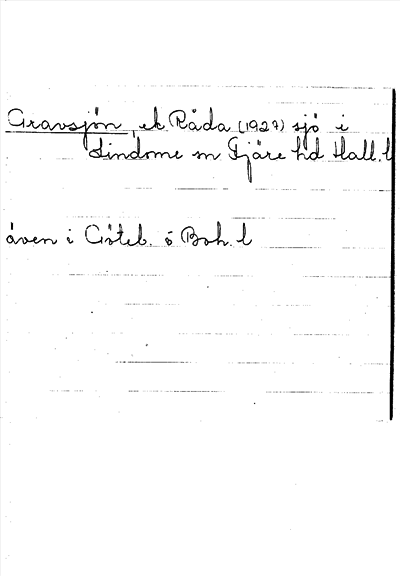 Gravsjön, ek. Råda (1927) sjö i
Lindome sn Fjäre hd Hall. l
även i Göteb. o Boh. l